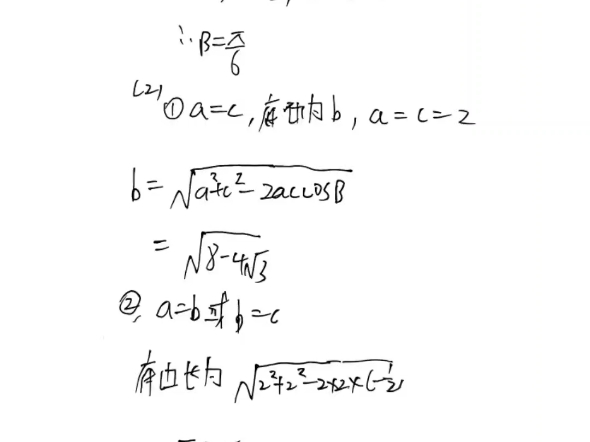 ∴B=π/6
(2)
①a=c,底边为b,a=c=2
b=√(a²+c²-2accosB)
=√(8-4√3)
②a=b或b=c
底边长为√(2²+2²-2×2×(-1/2)